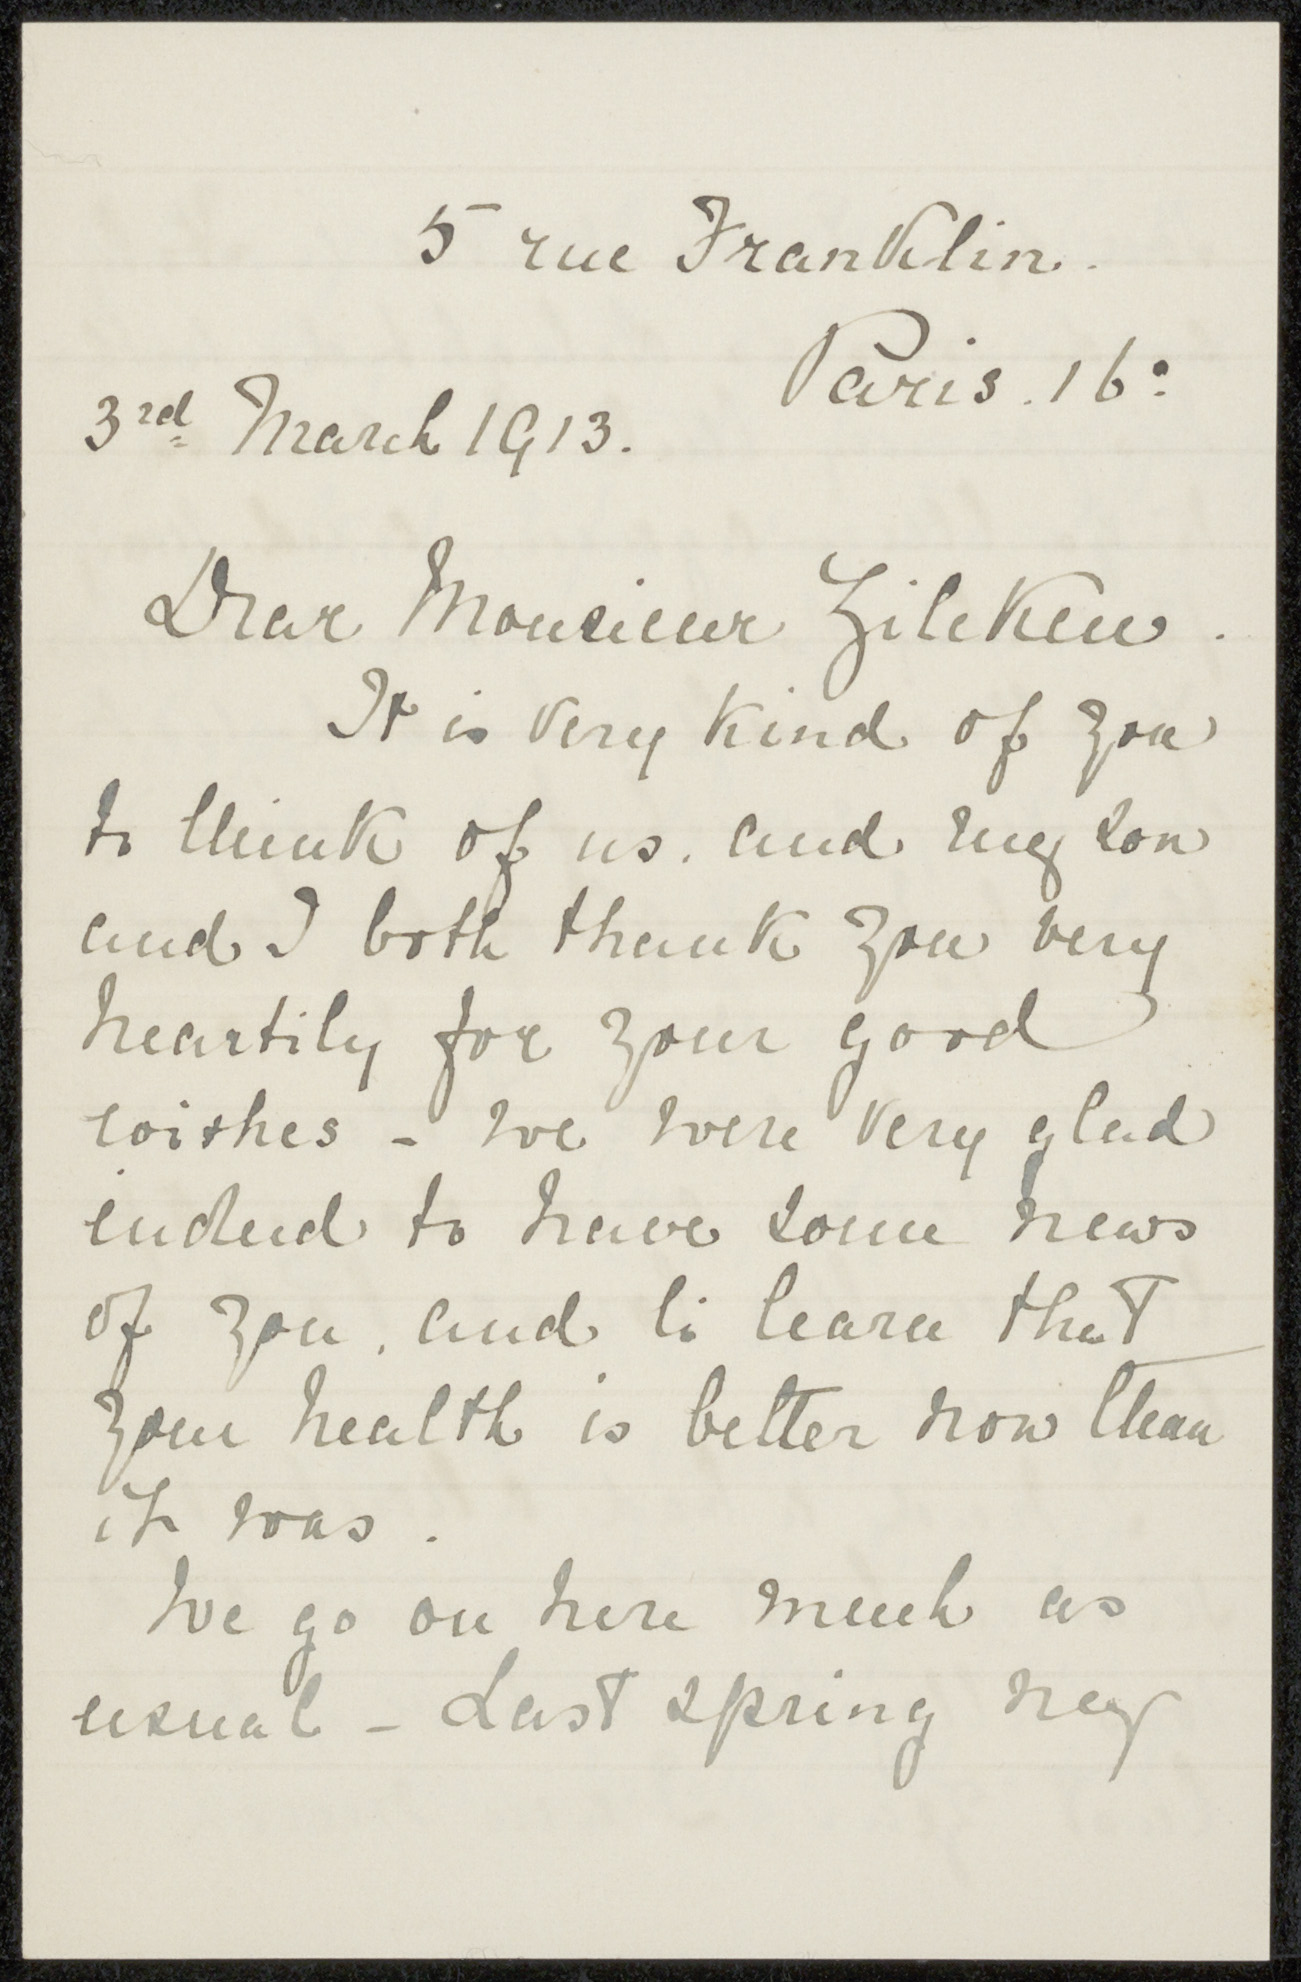 5 rue Franklin.
Paris. 16e
3rd March 1913.
Dear Monsieur Zilcken.
It is very kind of you
to think of us. and my son
and I both thank you very
heartily for your good
wishes - we were very glad
indeed to have some news
of you, and to learn that
your health is better now than
it was.
We go on here much as
usual - Last spring my